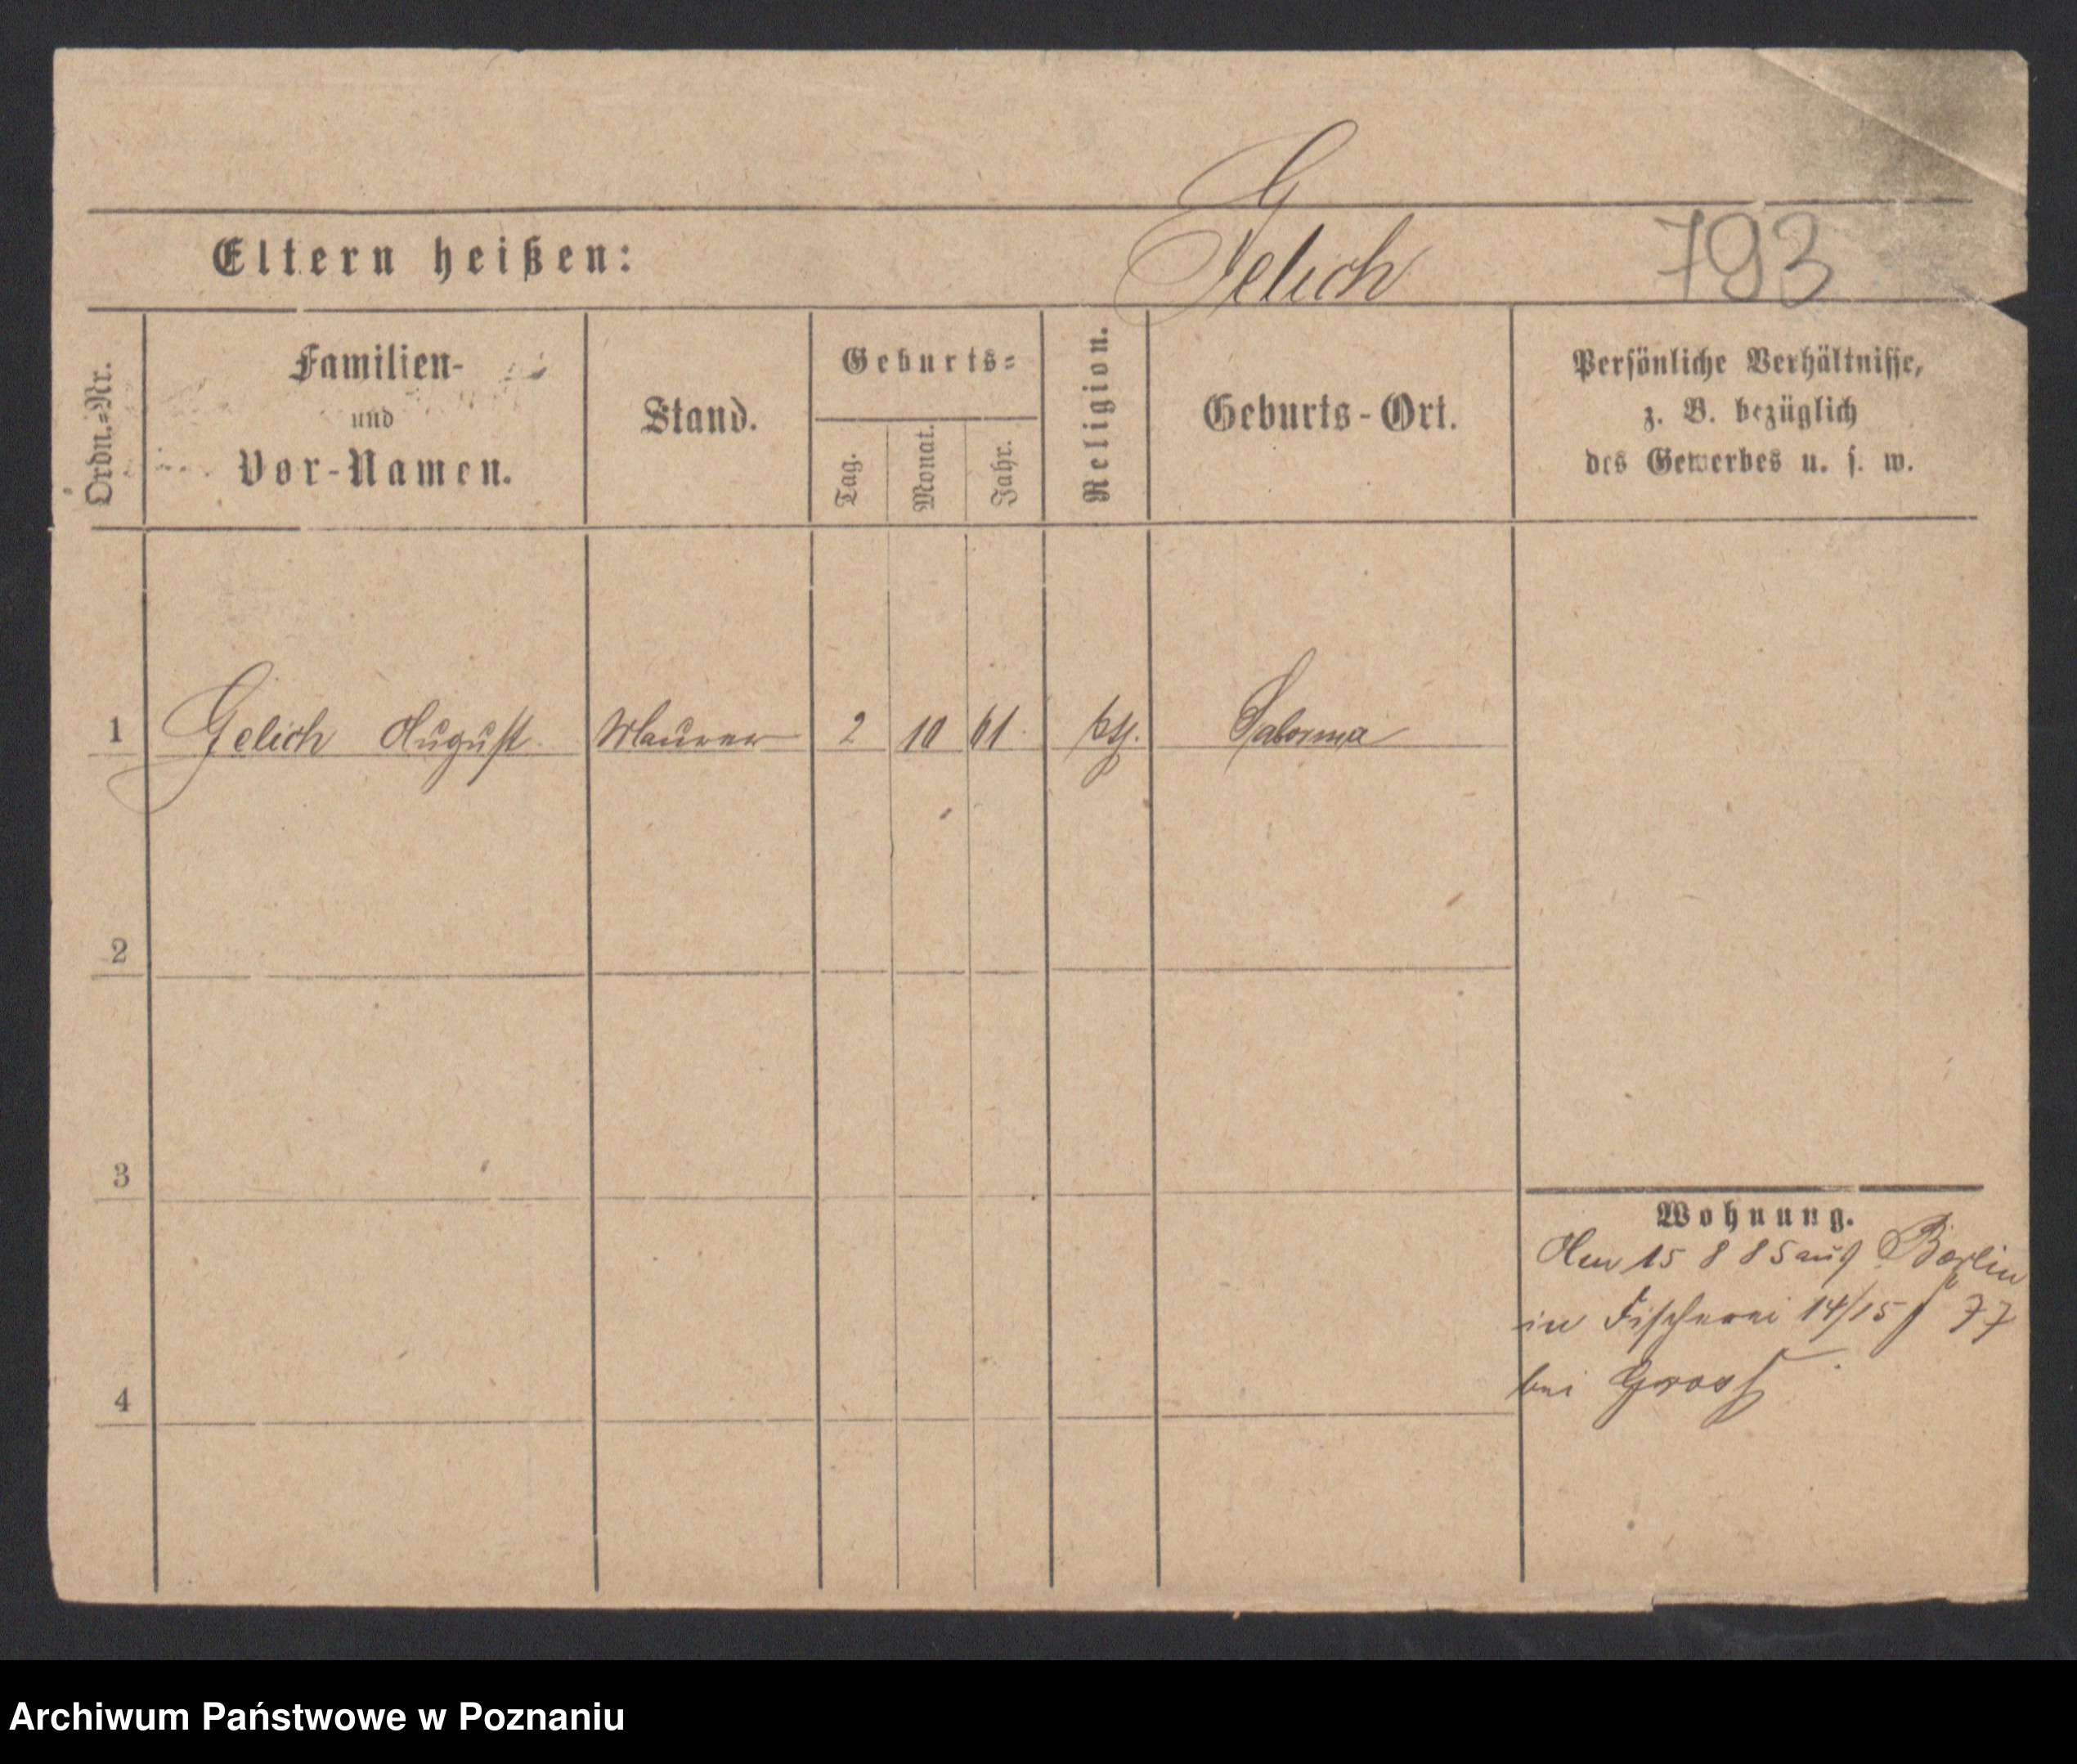 Eltern heißen:
Gelich
793
Ordn.=Nr.
Familien-
und
Vor-Namen.
Stand.
Geburts=
Tag.
Monat.
Jahr.
Religion.
Geburts-Ort.
Persönliche Verhältnisse,
z. B. bezüglich
des Gewerbes u. s. w.
1 Gelich August Maurer 2 10 61
2
3
4
Wohnung.
Den 15 8 85 aus Berlin
in Fischerei 14/15 77
bei Gross
Archiwum Państwowe w Poznaniu